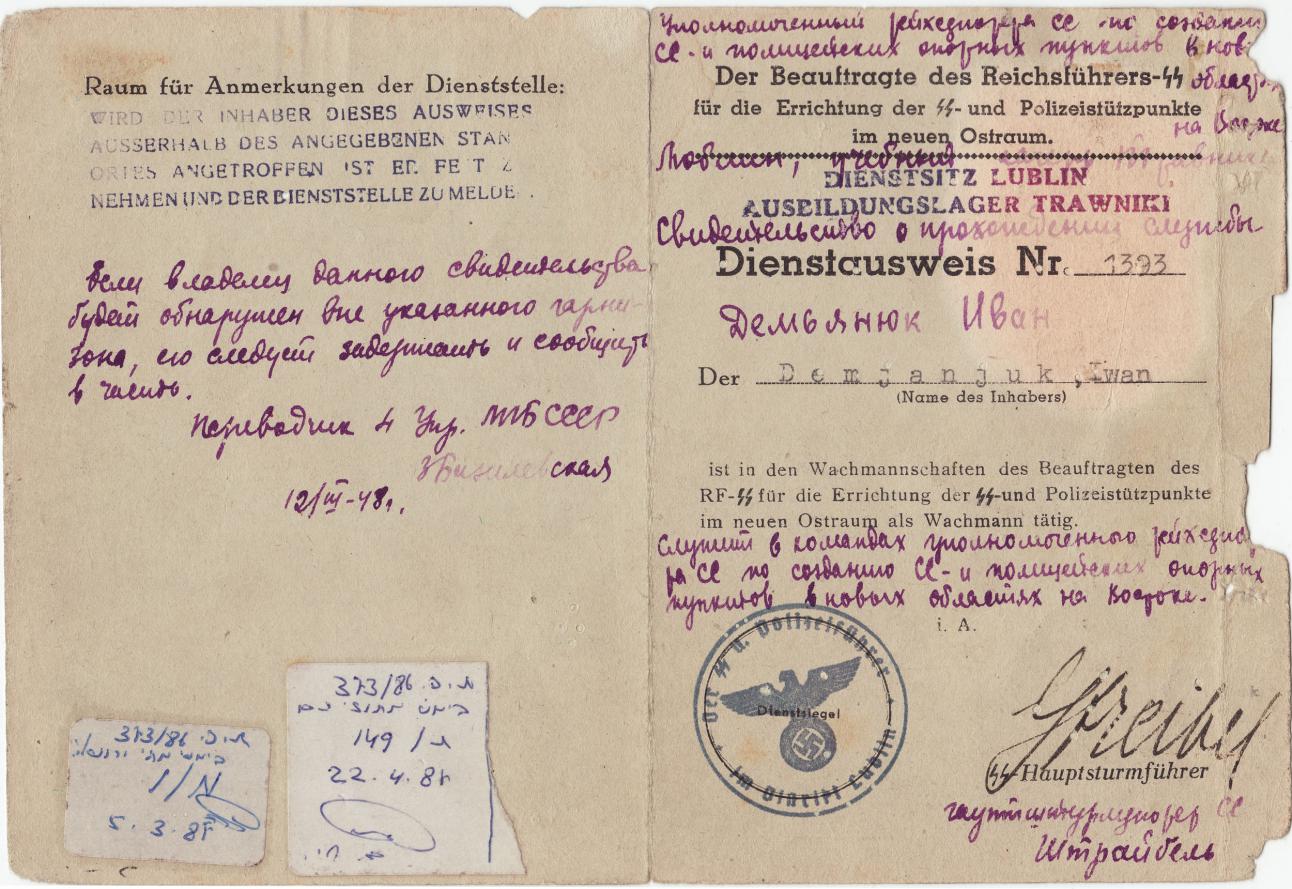 Raum für Anmerkungen der Dienststelle:
WIRD DER INHABER DIESES AUSWEISES
AUSSERHALB DES ANGEGEBENEN STAN
ORTES ANGETROFFEN IST ER FE T Z
NEHMEN UND DER DIENSTSTELLE ZU MELDE .
Если владелец данного свидетельства
будет обнаружен вне указанного гарни-
зона, его следует задержать и сообщить
в часть.
Переводчик 4 Упр. МГБ СССР
12/III-48г.
ת.פ. 373/86
5.3.87
ת.פ. 373/86
ת/149
22.4.87
Уполномоченный рейхсфюрера СС по создании
СС-и полицейских опорных пунктов в нов
Der Beauftragte des Reichsführers-SS
областях
für die Errichtung der SS- und Polizeistützpunkte
im neuen Ostraum.
на Востоке
Люблин, учебный
DIENSTSITZ LUBLIN
AUSBILDUNGSLAGER TRAWNIKI
Свидетельство о прохождении службы
Dienstausweis Nr. 1393
Демьянюк Иван
Der Demjanjuk, Iwan
(Name des Inhabers)
ist in den Wachmannschaften des Beauftragten des
RF-SS für die Errichtung der SS-und Polizeistützpunkte
im neuen Ostraum als Wachmann tätig.
Служит в командах уполномоченного рейхсфю
ра СС по созданию СС-и полицейских опорных
пунктов в новых областях на Востоке.
i. A.
Der SS u. Polizeiführer
Dienstsiegel
im Distrikt Lublin
Streibel
SS-Hauptsturmführer
гауптштурмфюрер СС
Штрайбель